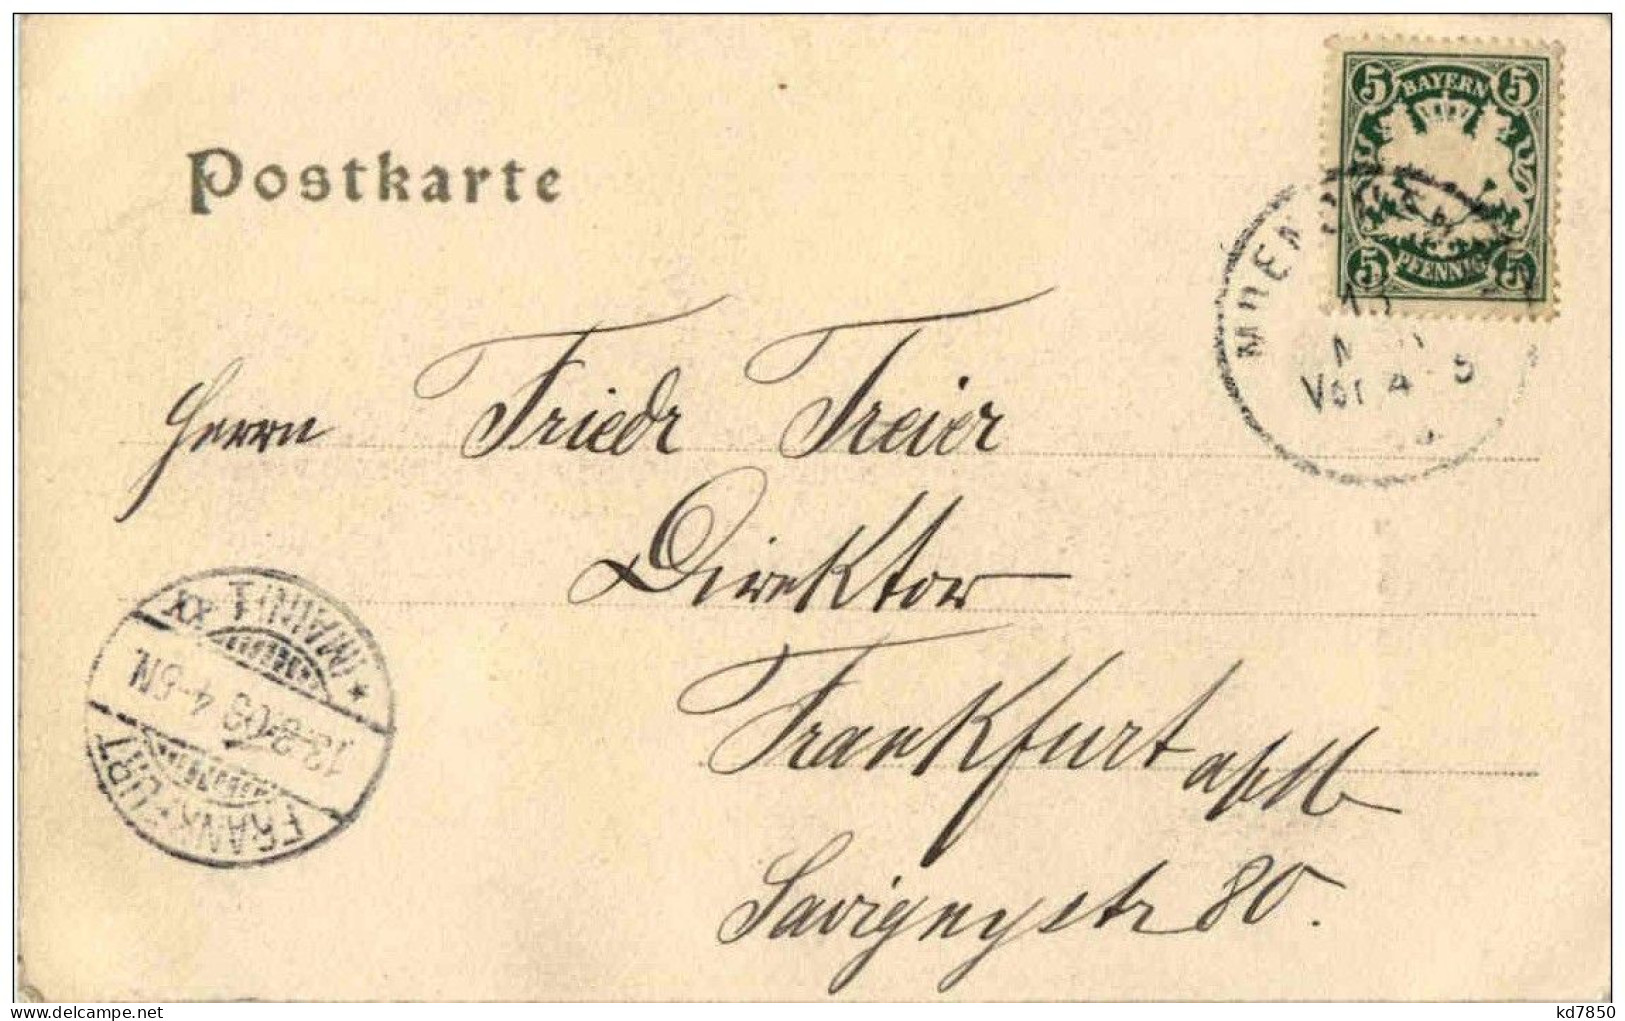 5 BAYERN 5
5 PFENNIG 5
Postkarte
Vor 4 - 5
Herrn Friedr Freier
Direktor
Frankfurt a/M
Savignystr 80.
* (MAIN) 1 XX
13.8.03 4-5N.
FRANKFURT
kd7850